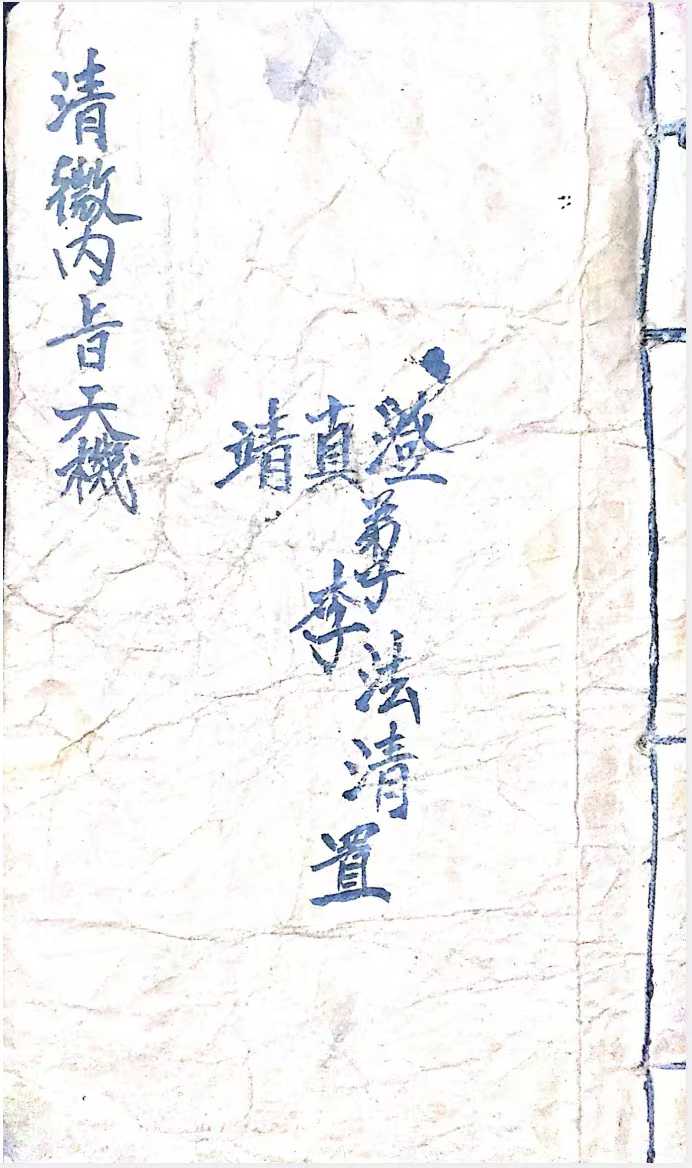 真靖
弟子李法清置
清微内旨天機